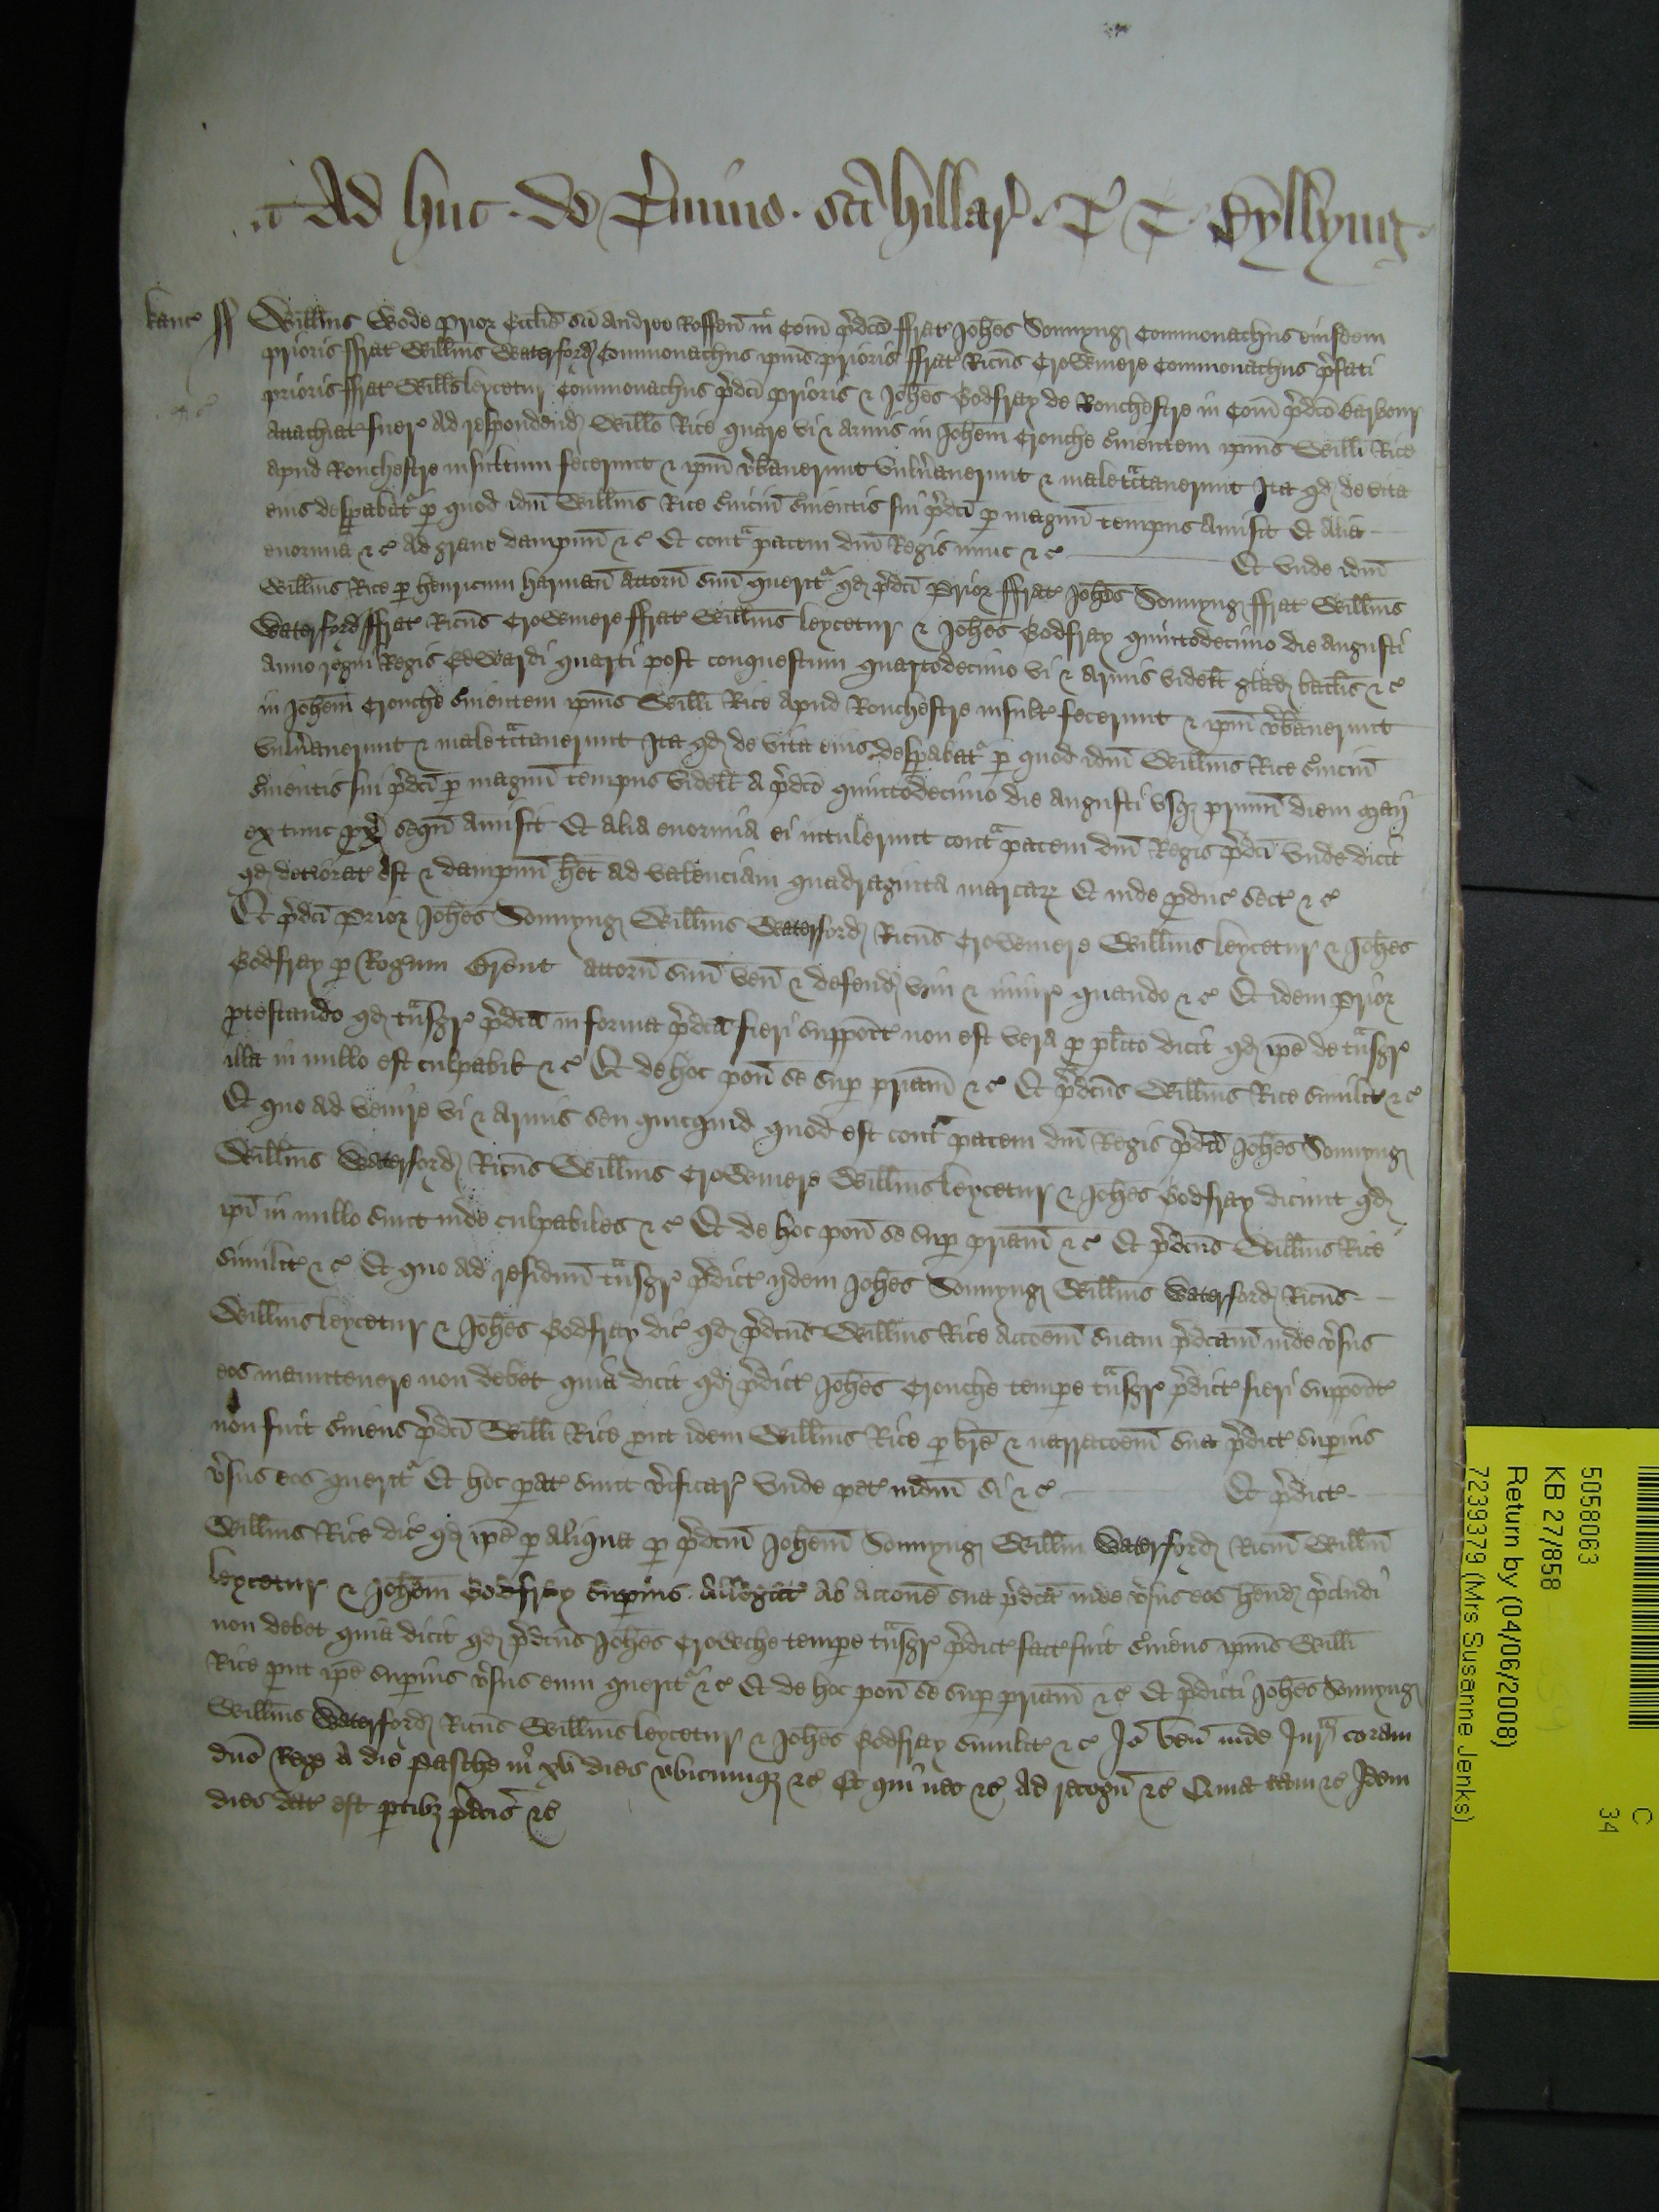 Ad huc · de T'mino · sc̄i hillar' · T T · Byllyng ·
Kanc' ss Willm̄s Wode Prior Ecclie sc̄i Andree Roffen̄ in Com̄ p̄dc̄o ffrat' Joh̄es Sonnyng Commonachus eiusdem
prioris ffrat' Willm̄s Waterford Commonachus ip̄ius prioris ffrat' Ric̄us Crowemere Commonachus p̄fati
prioris ffrat' Willm̄s leycetur Commonachus p̄dc̄i prioris & Joh̄es Godfray de Rouchestre in Com̄ p̄dc̄o barbour
attachiat' fuer' ad respondend' Willo Rice quare vi & armis in Joh̄em Crouche s'uientem ip̄ius Willi Rice
apud Rouchestre insultum fecerunt & ip̄m v'b'auerunt vuln'auerunt & maletc̄auerunt Ita qd' de vita
eius desp'abat' p quod idm̄ Willm̄s Rice s'uiciū s'uientis sui p̄dc̄i p magnū tempus amisit Et alia
enormia &c' ad graue dampnū &c' Et cont' pacem dn̄i Regis nunc &c' Et vnde idm̄
Willm̄s Rice p henricum harman attorn̄ suū querit' qd' p̄dc̄i Prior ffrat' Joh̄es Sonnyng ffrat' Willm̄s
Waterford ffrat' Ric̄us Crowemere ffrat' Willm̄s leycetur & Joh̄es Godfray quintodecimo die Augusti
anno regni Regis Edwardi quarti post conquestum quartodecimo vi & armis videlt' glad' baclis &c'
in Joh̄em Crouche s'uientem ip̄ius Willi Rice apud Rouchestre insult' fecerunt & ip̄m v'b'auerunt
vuln'auerunt & maletc̄auerunt Ita qd' de vita eius desp'abat' p quod idm̄ Willm̄s Rice s'uiciū
s'uientis sui p̄dc̄i p magnū tempus videlt' a p̄dc̄o quintodecimo die Augusti vsq' primū diem Maij
extunc px' seqū amisit Et alia enormia ei intulerunt cont' pacem dn̄i Regis p̄dc̄i vnde dicit
qd' deteriorat' est & dampnū h̄et ad valenciam quadraginta marcar' Et inde p'duc' sect' &c'
Et p̄dc̄i Prior Joh̄es Sonnyng Willm̄s Waterford Ric̄us Crowemere Willm̄s leycetur & Joh̄es
Godfray p Rog'um Brent attorn̄ suū ven̄ & defend' vim & iniur' quando &c' Et idem Prior
p'testando qd' t'nsgr' p̄dc̄a in forma p̄dc̄a fieri suppoit' non est vera p plito dicit qd' ip̄e de t'nsgr'
illa in nullo est culpabil' &c' Et de hoc pon̄ se sup pri'am &c' Et p̄dc̄us Willm̄s Rice similit' &c'
Et quo ad venire vi & armis seu quicquid quod est cont' pacem dn̄i Regis p̄dc̄i Joh̄es Sonnyng
Willm̄s Waterford Ric̄us Willm̄s Crowemere Willm̄s leycetur & Joh̄es Godfray dicunt qd'
ip̄i in nullo sunt inde culpabiles &c' Et de hoc pon̄ se sup pri'am &c' Et p̄dc̄us Willm̄s Rice
similit' &c' Et quo ad residuū t'nsgr' p̄dict' ijdem Joh̄es Sonnyng Willm̄s Waterford Ric̄us
Willm̄s leycetur & Joh̄es Godfray dic' qd' p̄dc̄us Willm̄s Rice acc̄oem suam p̄dc̄am inde v'sus
eos manutenere non debet quia dicit qd' p̄dict' Joh̄es Crouche tempe t'nsgr' p̄dict' fieri suppoit'
non fuit s'uiens p̄dc̄i Willi Rice prout idem Willm̄s Rice p br̄e & narrac̄oem sua p̄dict' sup'ius
v'sus eos querit' Et hoc parat' sunt v'ificar' vnde pet' iudm̄ si &c' Et p̄dict'
Willm̄s Rice dic' qd' ip̄e p aliqua p p̄dc̄m Joh̄em Sonnyng Willm̄ Waterford Ric̄m Willm̄
leycetur & Joh̄em Godfray sup'ius allegat' ab acc̄one sua p̄dc̄a inde v'sus eos hend' p̄cludi
non debet quia dicit qd' p̄dc̄us Joh̄es Crowche tempe t'nsgr' p̄dict' fact' fuit s'uiens ip̄ius Willi
Rice put ip̄e sup'ius v'sus eum querit' &c' Et de hoc pon̄ se sup pri'am &c' Et p̄dicti Joh̄es Sonnyng
Willm̄s Waterford Ric̄us Willm̄s leycetur & Joh̄es Godfray similit' &c' Jō ven̄ inde Jur' coram
dn̄o Rege a die Pasche in xv dies vbicumq' &c' Et qui nec &c' ad recogn̄ &c' Quia tam &c' Idem
dies dat' est p'tib' p̄dc̄is &c'
5058063
C
34
KB 27/858
Return by (04/06/2008)
7239379 (Mrs Susanne Jenks)